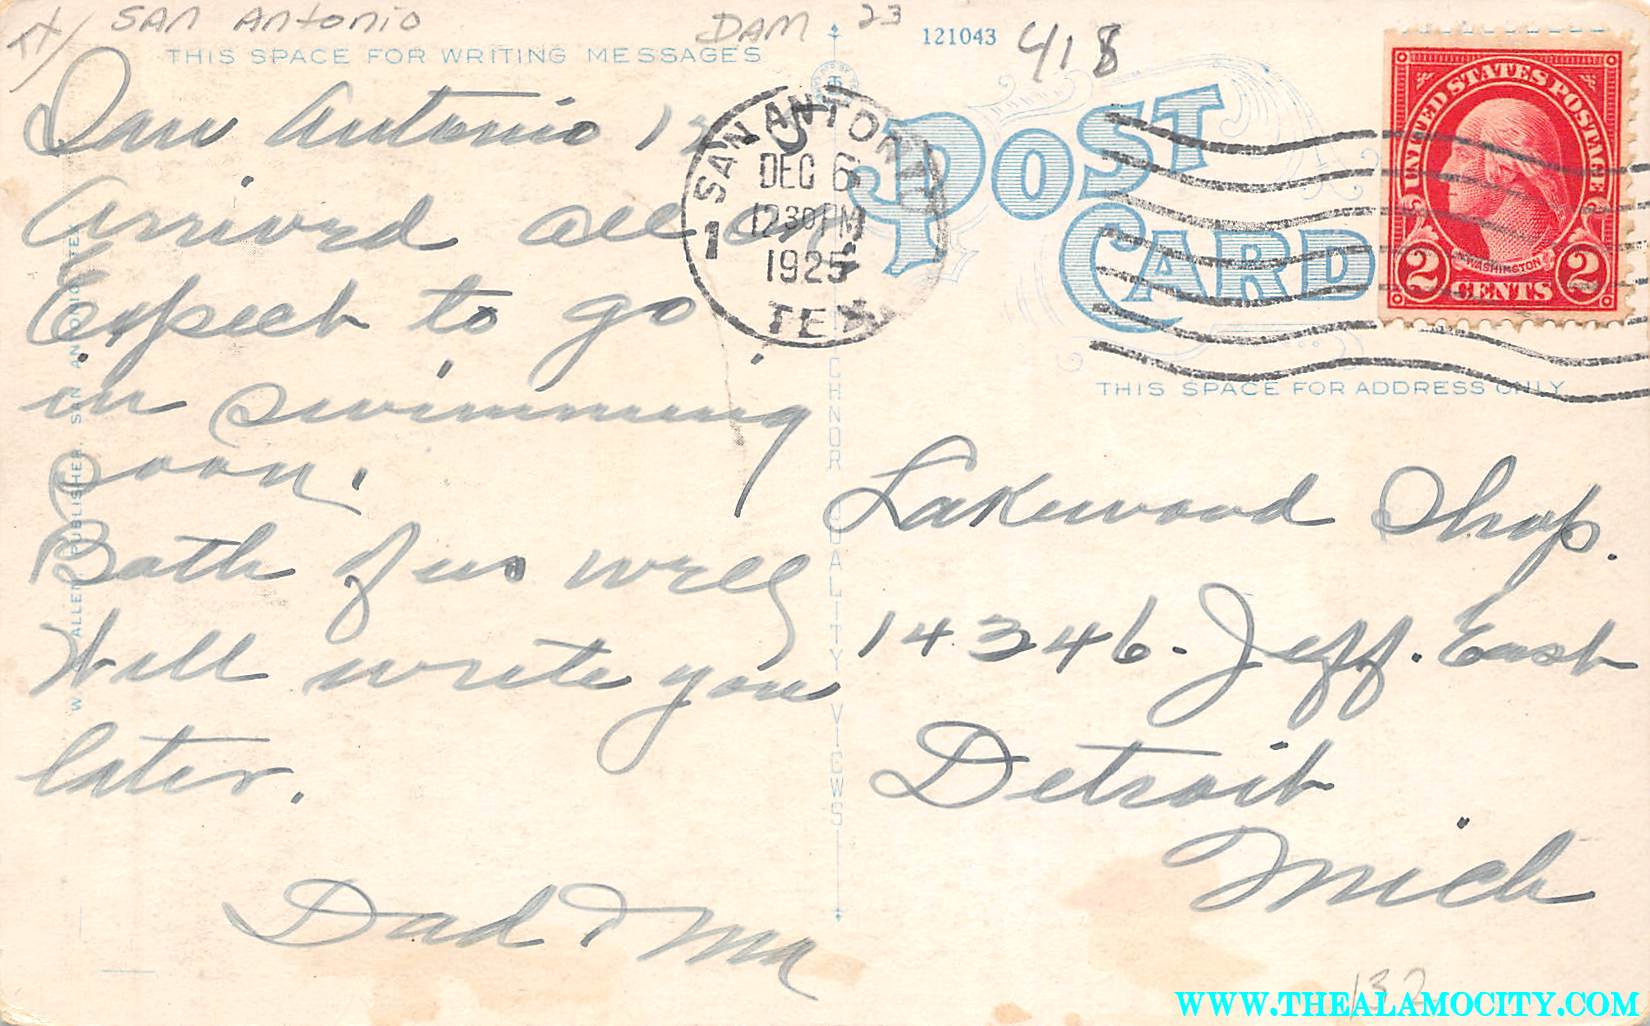 TX/ SAN ANTONIO
DAM 23
121043
418
THIS SPACE FOR WRITING MESSAGES
POST
CARD
THIS SPACE FOR ADDRESS ONLY
UNITED STATES POSTAGE
WASHINGTON
2 CENTS 2
SAN ANTONIO
DEC 6
12 30 PM
1925
TEX
1
San Antonio
Arrived all
Expect to go
in swimming
soon.
Both of us well
Will write you
later.
Dad & Ma
Lakewood Shop.
14346 - Jeff. East
Detroit
Mich
PUBLISHER, SAN ANTONIO, TEX
QUALITY VIEWS
132
WWW.THEALAMOCITY.COM